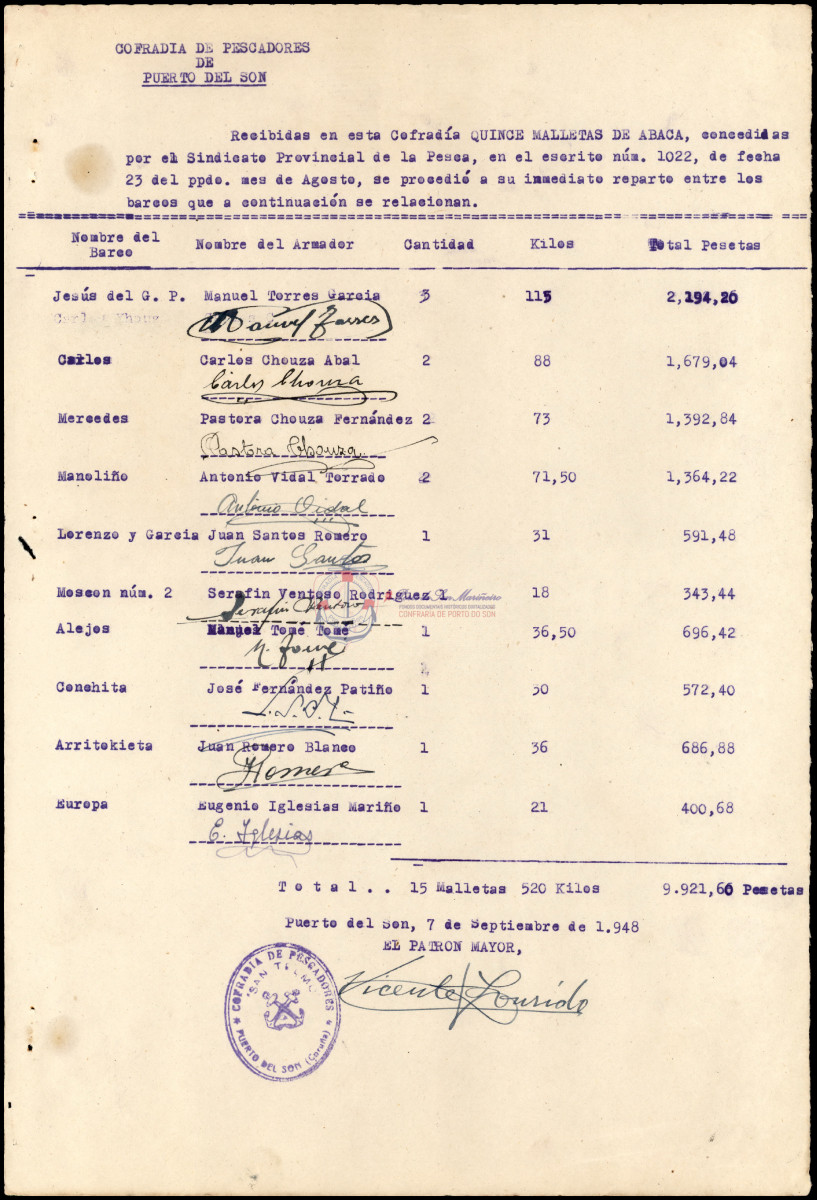 COFRADIA DE PESCADORES
DE
PUERTO DEL SON
Recibidas en esta Cofradía QUINCE MALLETAS DE ABACA, concedidas
por el Sindicato Provincial de la Pesca, en el escrito núm. 1022, de fecha
23 del ppdo. mes de Agosto, se procedió a su inmediato reparto entre los
barcos que a continuación se relacionan.
Nombre del Barco Nombre del Armador Cantidad Kilos Total Pesetas
Jesús del G. P. Manuel Torres Garcia 3 115 2,194,20
Manuel Torres
Carlos Carlos Chouza Abal 2 88 1,679,04
Carlos Chouza
Mercedes Pastora Chouza Fernández 2 73 1,392,84
Pastora Chouza
Manoliño Antonio Vidal Torrado 2 71,50 1,364,22
Antonio Vidal
Lorenzo y Garcia Juan Santos Romero 1 31 591,48
Juan Santos
Moscon núm. 2 Serafin Ventoso Rodriguez 18 343,44
Serafin Ventoso
CONFRARIA DE PORTO DO SON
Alejos Manuel Tome Tomé 1 36,50 696,42
Conchita José Fernández Patiño 1 30 572,40
Arritokieta Juan Romero Blanco 1 36 686,88
Romero
Europa Eugenio Iglesias Mariño 1 21 400,68
E. Iglesias
Total.. 15 Malletas 520 Kilos 9.921,60 Pesetas
Puerto del Son, 7 de Septiembre de 1.948
EL PATRON MAYOR,
Vicente Lourido
COFRADIA DE PESCADORES
"SAN TELMO"
PUERTO DEL SON (Coruña)